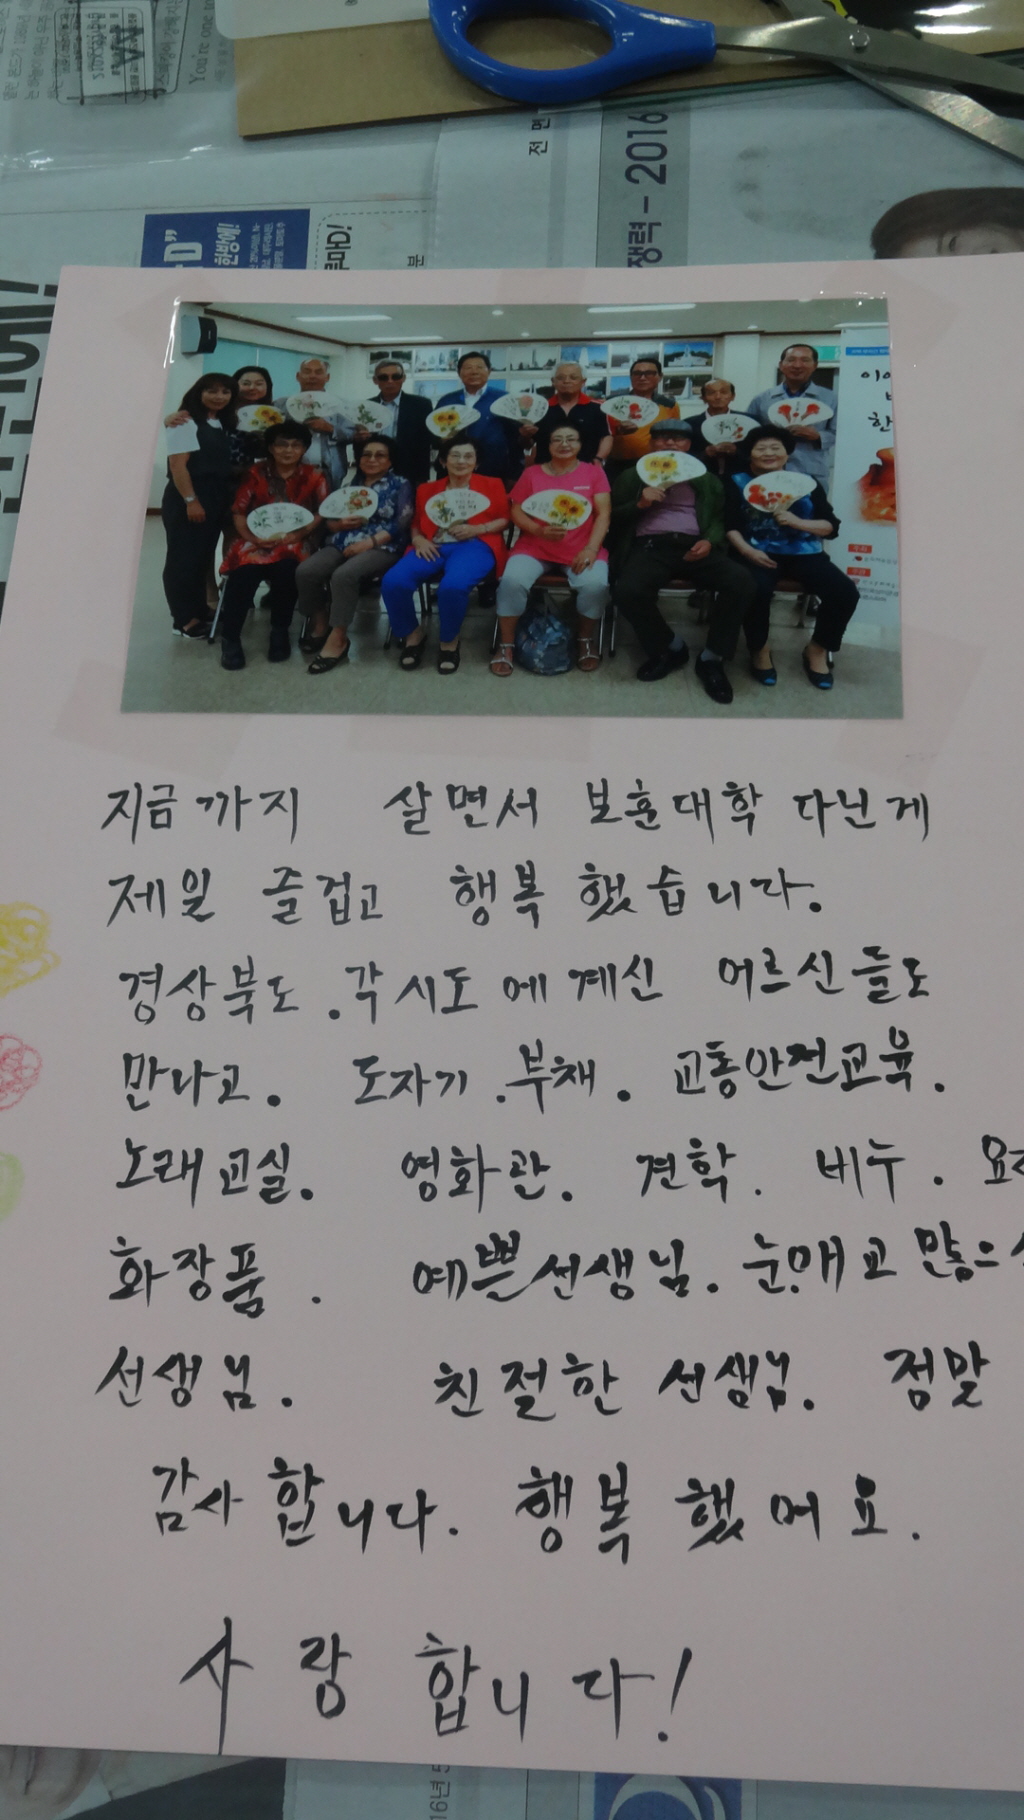 You're one
전 면
쟁력 - 2016
D"
한방에!
루마D!
분
이
한
지금까지 살면서 보훈대학 다닌게
제일 즐겁고 행복했습니다.
경상북도 .각시도에계신 어르신들도
만나고. 도자기 .부채. 교통안전교육.
노래교실. 영화관. 견학. 비누.
화장품. 예쁜선생님. 눈.매교
선생님. 친절한 선생님. 정말
감사합니다. 행복했어요.
사랑합니다!